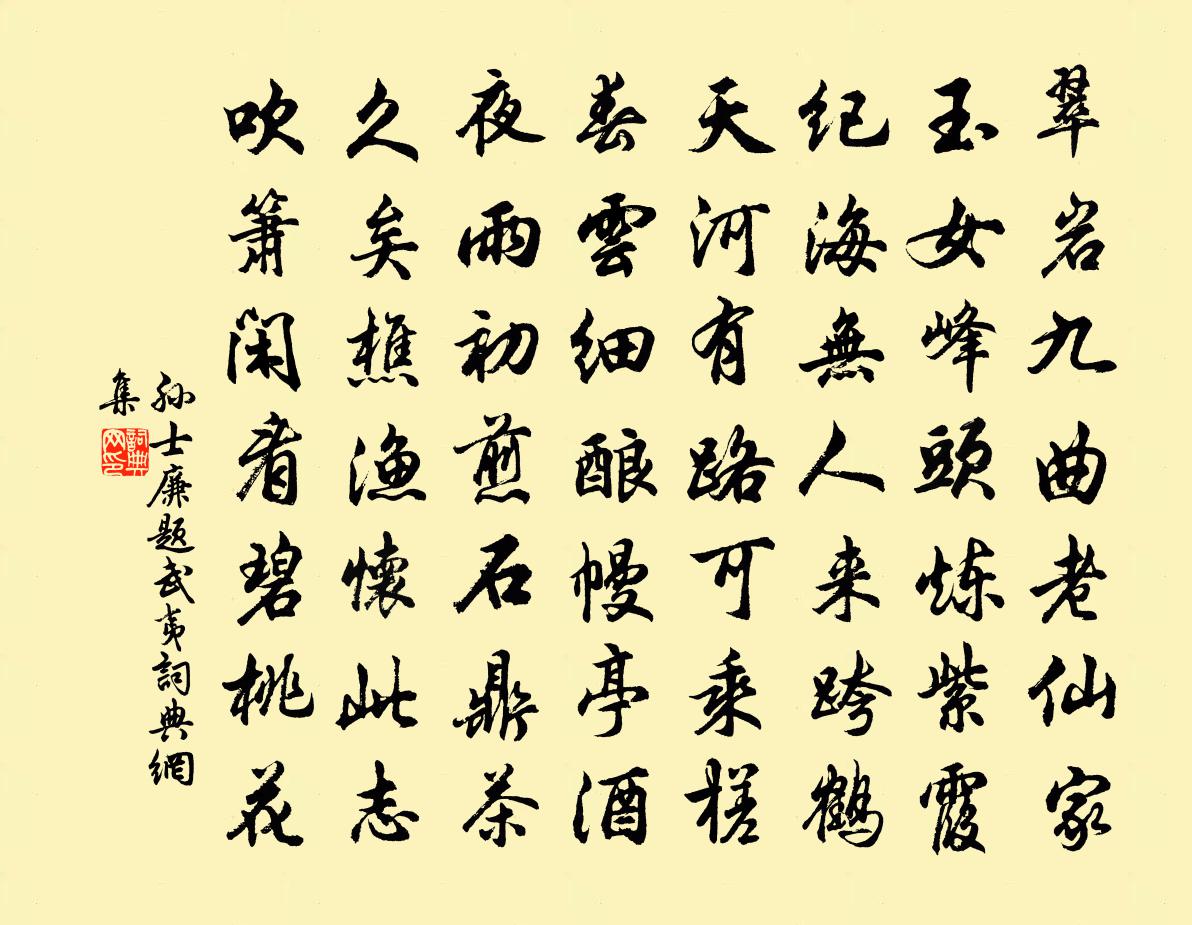 翠岩九曲老仙家
玉女峰頭炼紫霞
纪海無人来跨鹤
天河有路可乘槎
春雲细酿幔亭酒
夜雨初煎石鼎茶
久矣樵渔懷此志
吹箫闲看碧桃花
孙士廉题武夷詞典網
集
詞典
网印